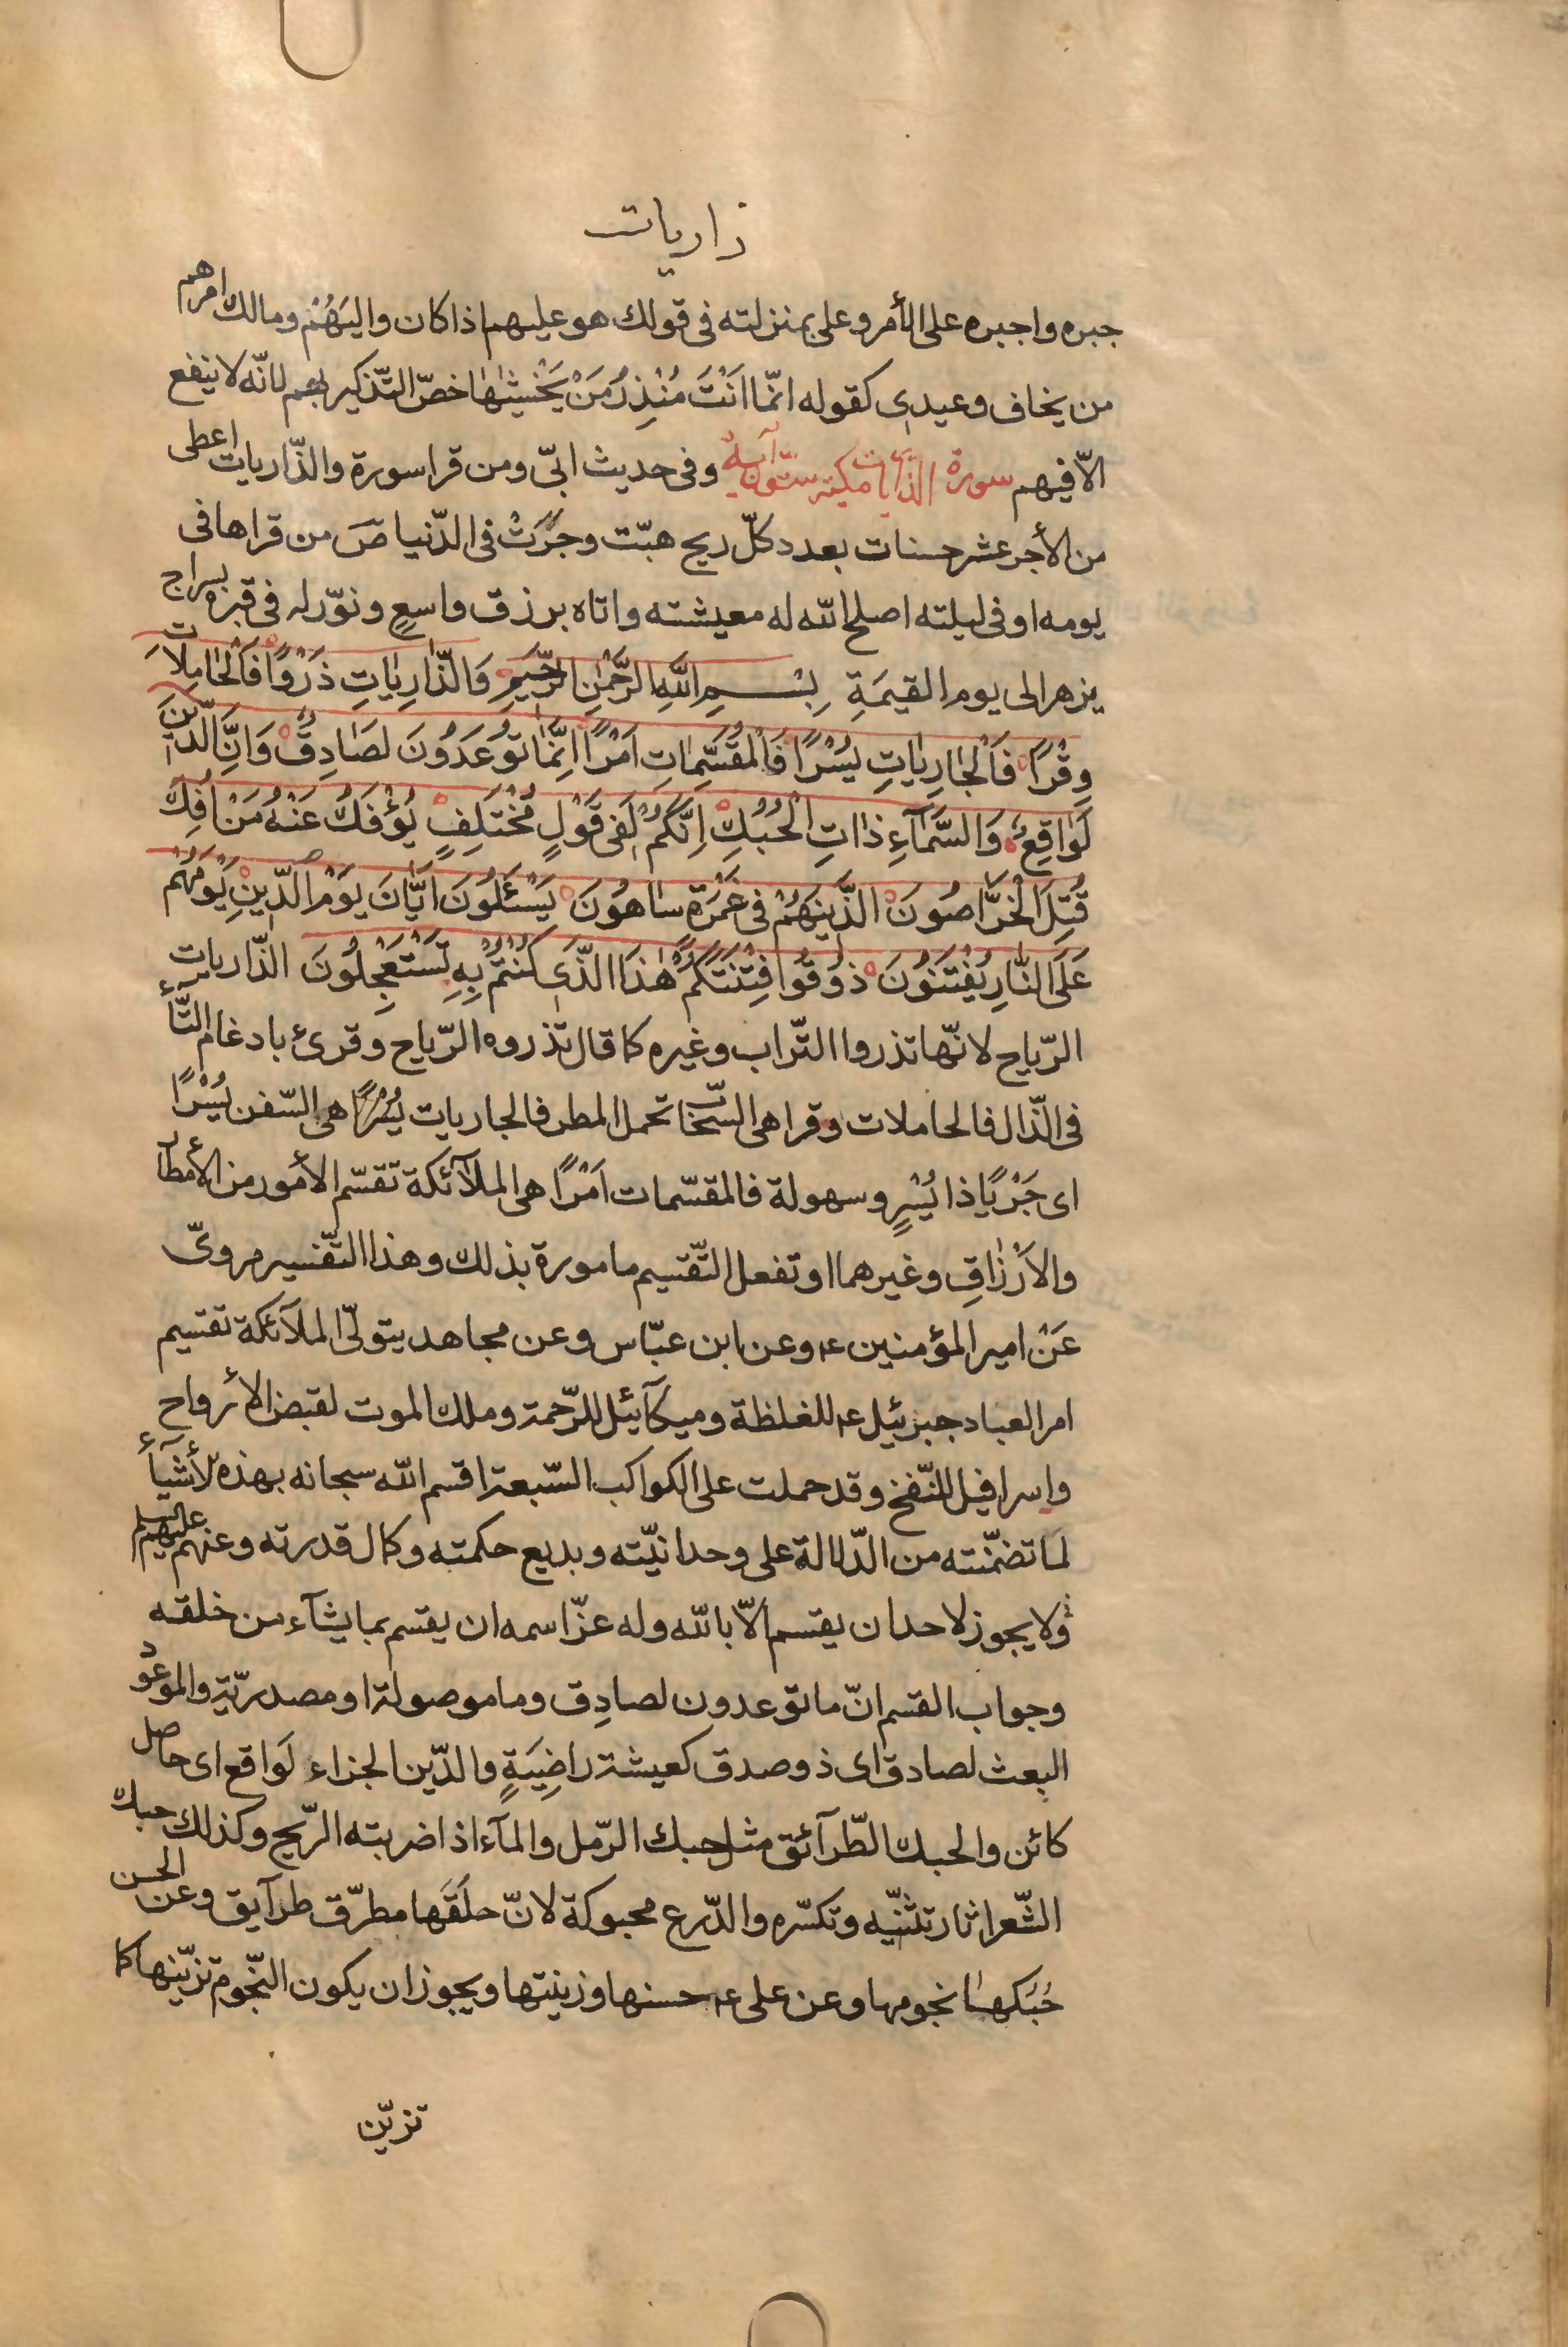 ذاريات
جبره واجبره على الأمر وعلى بمنزلته فى قولك هو عليهم اذا كان واليَهُمْ ومالك امرهم
من يخاف وعيدى كقوله انّما اَنْتَ مُنْذِرُ مَنْ يَخْشٰيهٰا خصّ التّذكير بهم لانّه لا ينفع
الّا فيهم سورة الذّاريات مكيّة ستّون آية وفى حديث ابىّ ومن قرا سورة والذّاريات اعطى
من الأجر عشر حسنات بعدد كلّ ريح هبّت وجَرَتْ فى الدّنيا صَ من قراها فى
يومه او فى ليلته اصلح الله له معيشته واتاه برزق واسعٍ ونوّر له فى قبره بسراج
يزهر الى يوم القيمَةِ بِسْمِ اللّٰهِ الرَّحْمٰنِ الرَّحيٖمِ وَالذّٰارِيٰاتِ ذَرْوًا فَالْحٰامِلاٰتِ
وِقْرًا فَالْجٰارِيٰاتِ يُسْرًا فَالْمُقَسِّمٰاتِ اَمْرًا اِنَّمٰا تُوعَدُونَ لَصٰادِقٌ وَاِنَّ الدّٖينَ
لَوٰاقِعٌ وَالسَّمٰآءِ ذٰاتِ الْحُبُكِ اِنَّكُمْ لَفٖى قَوْلٍ مُخْتَلِفٍ يُؤْفَكُ عَنْهُ مَنْ اُفِكَ
قُتِلَ الْخَرّٰاصُونَ الَّذٖينَ هُمْ فٖى غَمْرَةٍ سٰاهُونَ يَسْئَلُونَ اَيّٰانَ يَوْمُ الدّٖينِ يَوْمَ هُمْ
عَلَى النّٰارِ يُفْتَنُونَ ذُوقُوا فِتْنَتَكُمْ هٰذَا الَّذٖى كُنْتُمْ بِهٖ تَسْتَعْجِلُونَ الذّاريات
الرّياح لانّها تذروا التّراب وغيره كما قال تذروه الرّياح وقرئ بادغام التّآء
فى الذّال فالحاملات وقرا هى السّحاب تحمل المطر فالجاريات يُسْرًا هى السّفن يُسْرًا
اى جَرْيًا ذا يُسْرٍ وسهولة فالمقسّمات اَمْرًا هى الملآئكة تقسّم الأمور من الأمطار
والاَرْزٰاقِ وغيرهما او تفعل التّقسيم مامورة بذلك وهذا التّفسير مروىّ
عَنْ امير المؤمنين ع وعن ابن عبّاس وعن مجاهد يتولّى الملآئكة تقسيم
امر العباد جبرئيل ع للغلظة وميكآئيل للرّحمة وملك الموت لقبض الأرواح
واسرافيل للنّفخ وقد حملت على الكواكب السّبعة اقسم الله سبحانه بهذه الأشيآء
لما تضمّنته من الدّلالة على وحدانيّته وبديع حكمته وكمال قدرته وعنهم عليهم السلم
ولا يجوز لاحد ان يقسم الّا بالله وله عزّ اسمه ان يقسم بما يشآء من خلقه
وجواب القسم انّ ما توعدون لصادِق وما موصولة او مصدريّة والموعود
البعث لصادق اى ذو صدق كعيشة راضِيَةٍ والدّين الجزاء لَواقع اى حاصل
كائن والحبك الطّرآئق مثل حبك الرّمل والمآء اذا ضربته الرّيح وكذلك حبك
الشّعر اثار تثنّيه وتكسّره والدّرع محبوكة لانّ حلَقَها مطرّق طرآيق وعن الحسن
حُبُكهٰا نجومها وعن على ع حسنها وزينتها ويجوز ان يكون النّجوم تزيّنها كما
تزيّن